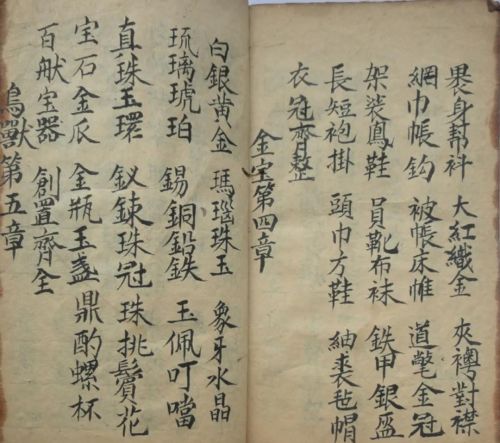 裹身幇衬 大紅織金 夾襷對襟
網巾帳鈎 被帳床帷 道氅金冠
架裝鳯鞋 員靴布袜 鉄甲銀盔
長短袍掛 頭巾方鞋 紬裘毡帽
衣冠齊整
金宝第四章
白銀黄金 瑪瑙珠玉 象牙水晶
琉璃琥珀 錫銅鉛鉄 玉佩叮噹
真珠玉環 釵鍊珠冠 珠挑鬢花
宝石金瓜 金瓶玉盞 鼎酌螺杯
百般宝器 創置齊全
鳥獸第五章